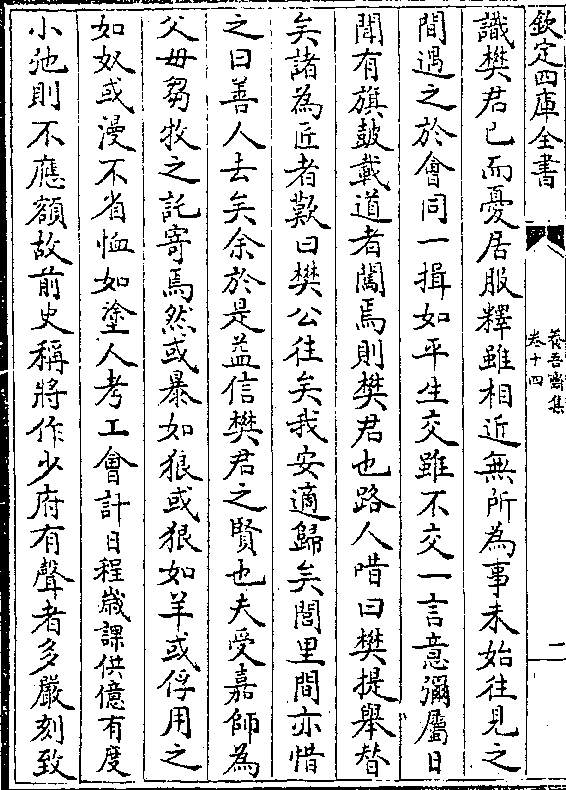 欽定四庫全書
養吾齋集
卷十四
二
識樊君已而憂居服釋雖相近無所為事未始往見之
間遇之於會同一揖如平生交雖不交一言意彌屬日
聞有旗鼓載道者闖焉則樊君也路人唶曰樊提舉替
矣諸為匠者歎曰樊公往矣我安適歸矣閭里間亦惜
之曰善人去矣余於是益信樊君之賢也夫受嘉師為
父母芻牧之託寄焉然或暴如狼或狠如羊或俘用之
如奴或漫不省恤如塗人考工會計日程歲課供億有度
小弛則不應額故前史稱將作少府有聲者多嚴刻致